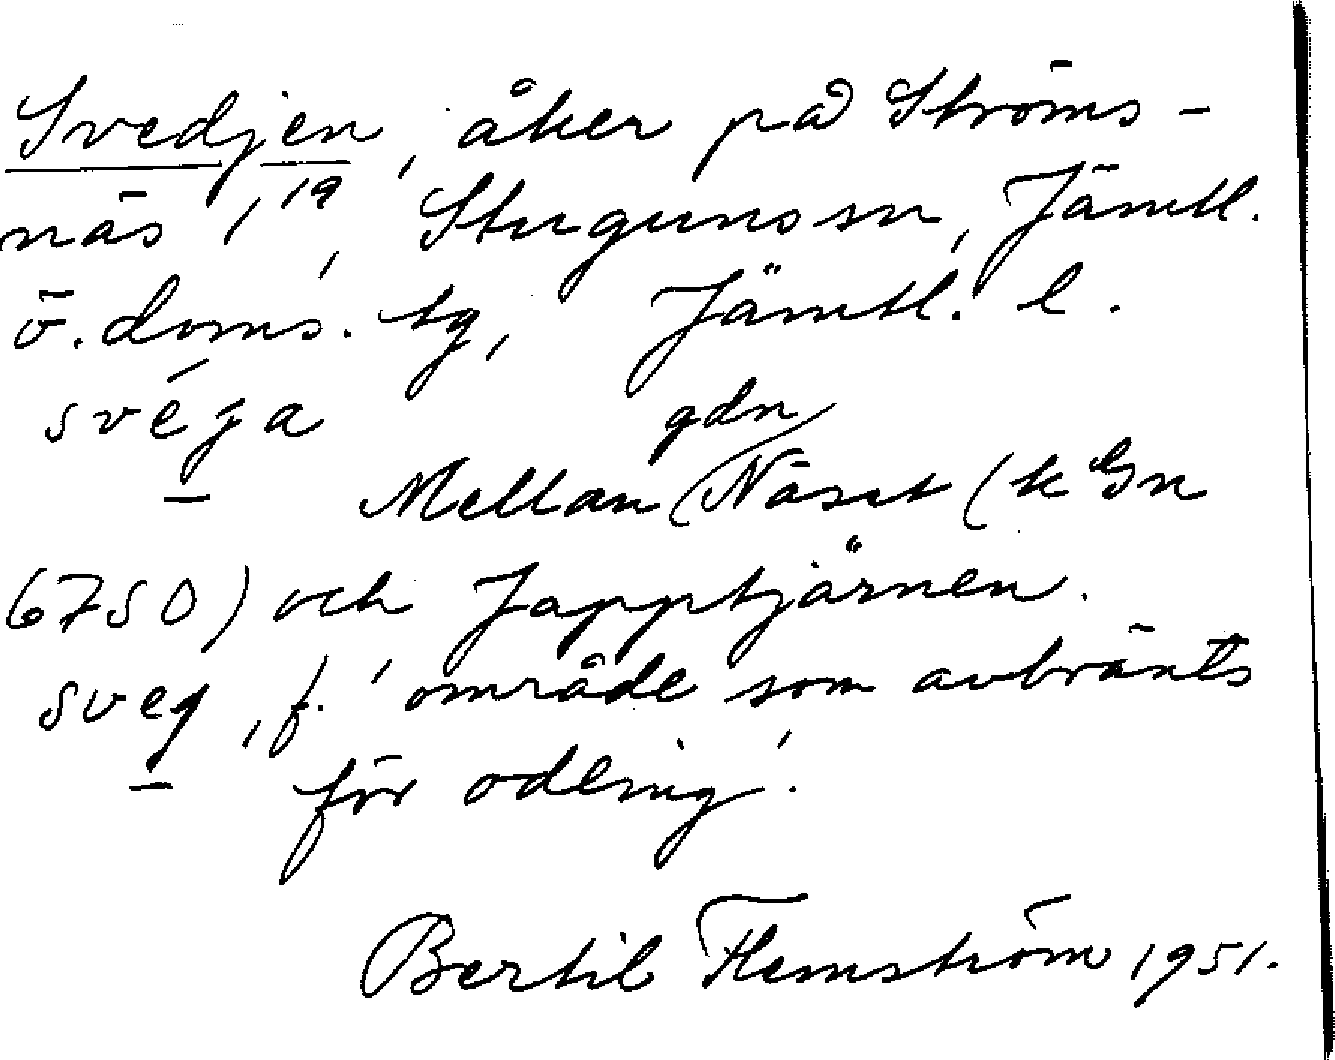 Svedjen, åker på Ströms-
näs 1,19, Stuguns sn, Jämtl.
ö. doms. tg, Jämtl. l.
svéja gdn
Mellan Näset (k Gn
6750) och Japptjärnen.
svej, f. 'område som avbränts
för odling'.
Bertil Flemström 1951.